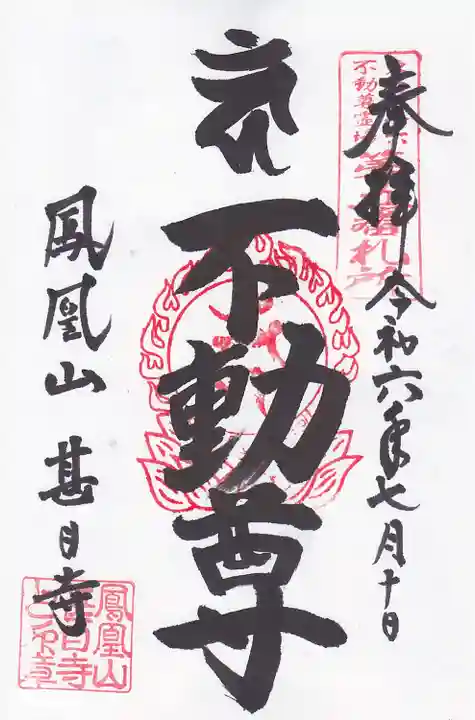 奉拝 令和六年七月十日
不動尊
鳳凰山 甚目寺
鳳凰山
甚目寺